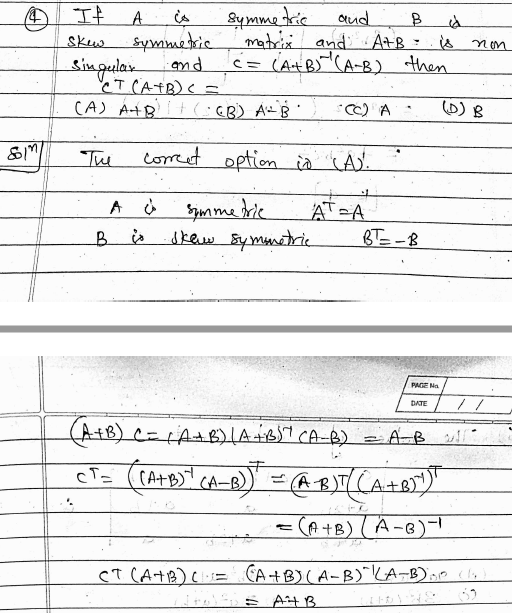 ④ If A is symmetric and B is
skew symmetric matrix and A+B is non
singular and C = (A+B)⁻¹(A-B) then
Cᵀ(A+B)C =
(A) A+B (B) A-B (C) A (D) B
Solⁿ The correct option is (A).
A is symmetric Aᵀ=A
B is skew symmetric Bᵀ=-B
PAGE No.
DATE / /
(A+B) C = (A+B)(A+B)⁻¹ (A-B) = A-B
Cᵀ = ((A+B)⁻¹ (A-B))ᵀ = (A-B)ᵀ((A+B)⁻¹)ᵀ
= (A+B) (A-B)⁻¹
Cᵀ (A+B) C = (A+B) (A-B)⁻¹(A-B)
= A+B